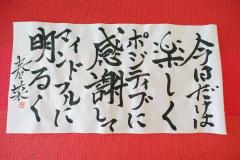 今日だけは
楽しく
ポジティブに
感謝して
マインドフルに
明るく